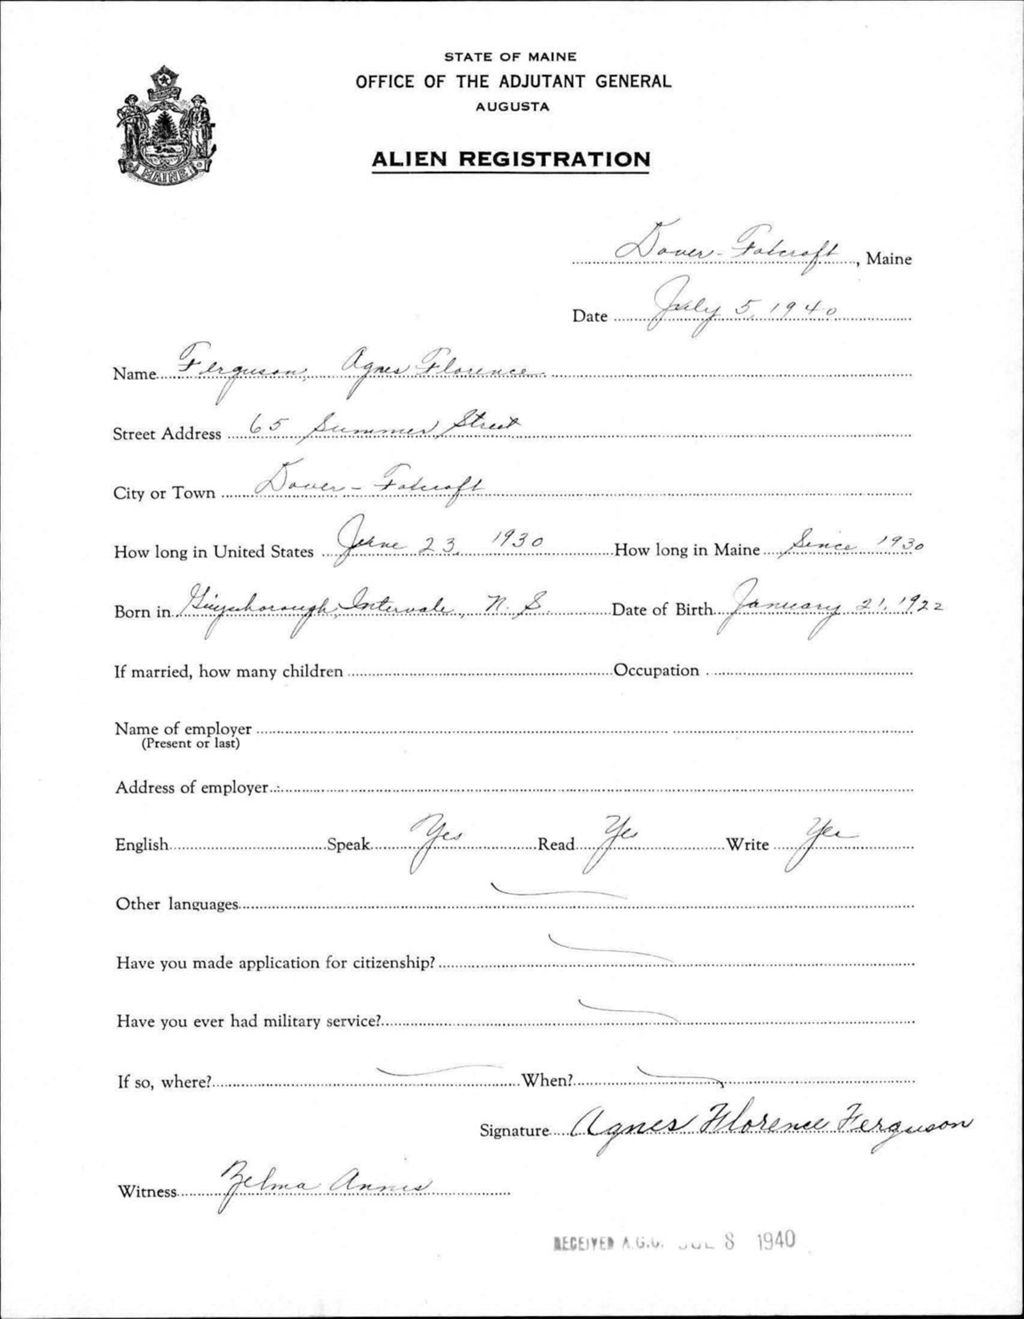 STATE OF MAINE
OFFICE OF THE ADJUTANT GENERAL
AUGUSTA
ALIEN REGISTRATION
MAINE
Dover-Foxcroft, Maine
Date July 5, 1940
Name Ferguson, Agnes Florence
Street Address 65 Summer Street
City or Town Dover-Foxcroft
How long in United States June 23, 1930 How long in Maine Since 1930
Born in Guysborough Intervale, N. S. Date of Birth January 21, 1922
If married, how many children Occupation
Name of employer
(Present or last)
Address of employer
English Speak Yes Read Yes Write Yes
Other languages
Have you made application for citizenship?
Have you ever had military service?
If so, where? When?
Signature Agnes Florence Ferguson
Witness Zelma Annis
RECEIVED A.G.O. JUL 8 1940